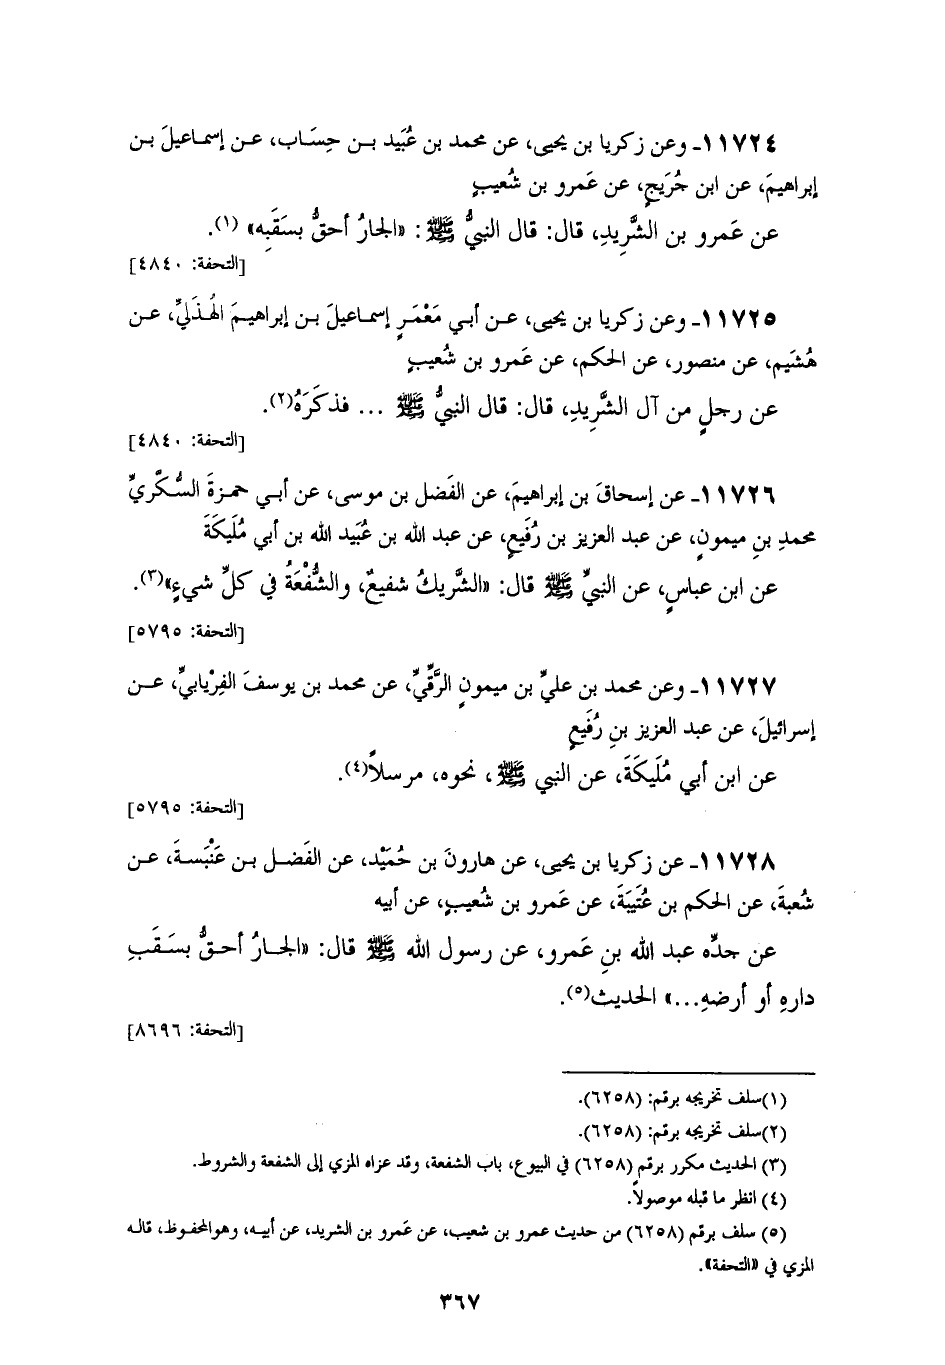 ١١٧٢٤ـ وعن زكريا بن يحيى، عن محمد بن عُبَيد بـن حِسَاب، عـن إسماعيلَ بـن
إبراهيمَ، عن ابن جُرَيجٍ، عن عَمرو بن شُعيبٍ
عن عَمرو بن الشَّرِيدِ، قال: قال النبيُّ ﷺ : «الجارُ أحقُّ بسَقَبِه» (١).
[التحفة: ٤٨٤٠]
١١٧٢٥ـ وعن زكريا بن يحيى، عـن أبـي مَعْمَرٍ إسمـاعيلَ بـن إبراهيـمَ الهُـذَليِّ، عـن
هُشَيم، عن منصور، عن الحكم، عن عَمرو بن شُعيبٍ
عن رجلٍ من آل الشَّرِيدِ، قال: قال النبيُّ ﷺ ... فذكَرَهُ(٢).
[التحفة: ٤٨٤٠]
١١٧٢٦ـ عن إسحاقَ بن إبراهيمَ، عن الفَضل بن موسى، عن أبـي حمـزةَ السُّـكَّريِّ
محمدِ بنِ ميمونٍ، عن عبد العزيز بن رُفَيعٍ، عن عبد الله بن عُبَيد الله بن أبي مُلَيكَةَ
عن ابن عباسٍ، عن النبيِّ ﷺ قال: «الشَّريكُ شفيعٌ، والشُّفْعَةُ في كلِّ شيءٍ»(٣).
[التحفة: ٥٧٩٥]
١١٧٢٧ـ وعن محمد بن عليِّ بن ميمونٍ الرَّقِّيِّ، عن محمد بن يوسفَ الفِرْيابيِّ، عـن
إسرائيلَ، عن عبد العزيز بنِ رُفَيعٍ
عن ابن أبي مُلَيكَةَ، عن النبي ﷺ ، نحوه، مرسلاً(٤).
[التحفة: ٥٧٩٥]
١١٧٢٨ـ عن زكريا بن يحيى، عن هارونَ بن حُمَيْد، عن الفَضـل بـن عَنْبَسـةَ، عـن
شُعبةَ، عن الحكم بن عُتَيبَةَ، عن عَمرو بن شُعيبٍ، عن أبيه
عن جدِّه عبد الله بنِ عَمرو، عن رسول الله ﷺ قال: «الجـارُ أحـقُّ بسَـقَبِ
دارِهِ أو أرضهِ...» الحديث(٥).
[التحفة: ٨٦٩٦]
(١)سلف تخريجه برقم: (٦٢٥٨).
(٢)سلف تخريجه برقم: (٦٢٥٨).
(٣) الحديث مكرر برقم (٦٢٥٨) في البيوع، باب الشفعة، وقد عزاه المزي إلى الشفعة والشروط.
(٤) انظر ما قبله موصولاً.
(٥) سلف برقم (٦٢٥٨) من حديث عمرو بن شعيب، عن عَمرو بن الشريد، عن أبيـه، وهوالمحفـوظ، قالـه
المزي في «التحفة».
٣٦٧